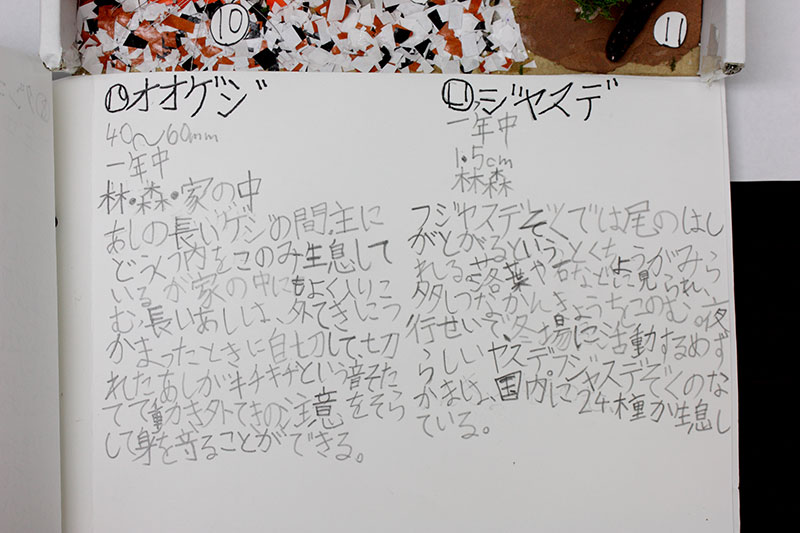 10
11
⑩オオゲジ
40〜60mm
一年中
林・森・家の中
あしの長いゲジの間.主に
どうくつ内をこのみ生息して
いるが家の中にもよく入りこ
む.長いあしは、外てきにつ
かまったときに自切して、切
れたあしがキチキチという音をた
てて動かき外てきの注意をそら
して身を守ることができる。
⑪フジヤスデ
一年中
1.5cm
林森
フジヤスデぞくでは尾のはし
がとがるという、とくちょうがみら
れる。落葉や石などに見られ、
多しつなかんきょうをこのむ。夜
行せいで、冬場に活動するめず
らしいヤスデ。フジヤスデぞくのなし
かまは、国内に24種が生息し
ている。